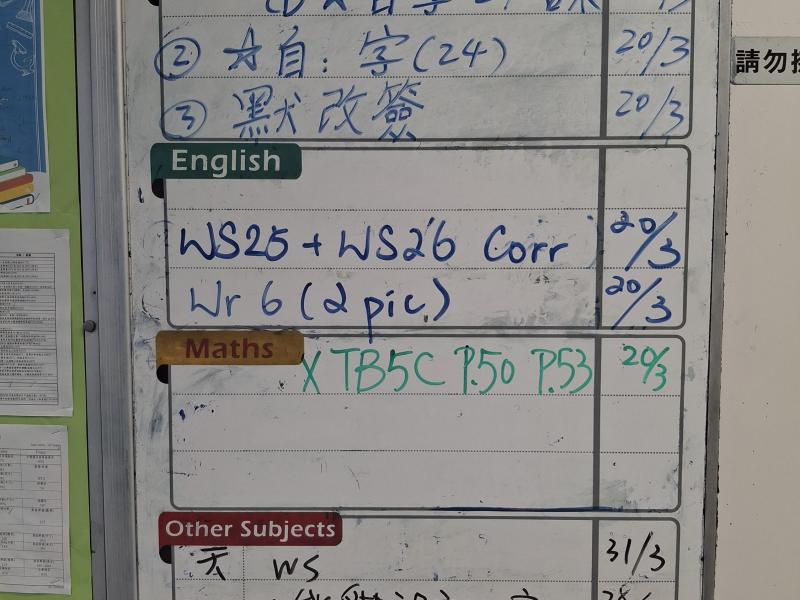 ② 大自：字(24) 20/3
③ 默改簽 20/3
請勿
English
WS25 + WS26 Corr 20/3
Wr 6 (2 pic) 20/3
Maths
X TB5C P.50 P.53 20/3
Other Subjects
WS 31/3